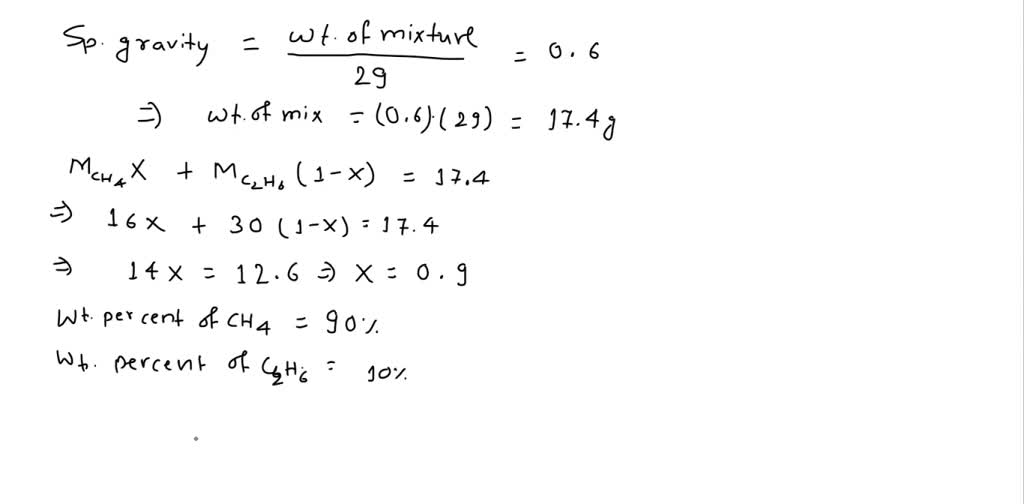 Sp. gravity = wt. of mixture / 29 = 0.6
=) wt. of mix = (0.6).(29) = 17.4g
M_CH4 X + M_C2H6 (1-x) = 17.4
=) 16x + 30 (1-x) = 17.4
=) 14x = 12.6 =) x = 0.9
Wt. percent of CH4 = 90%
Wt. percent of C2H6 = 10%